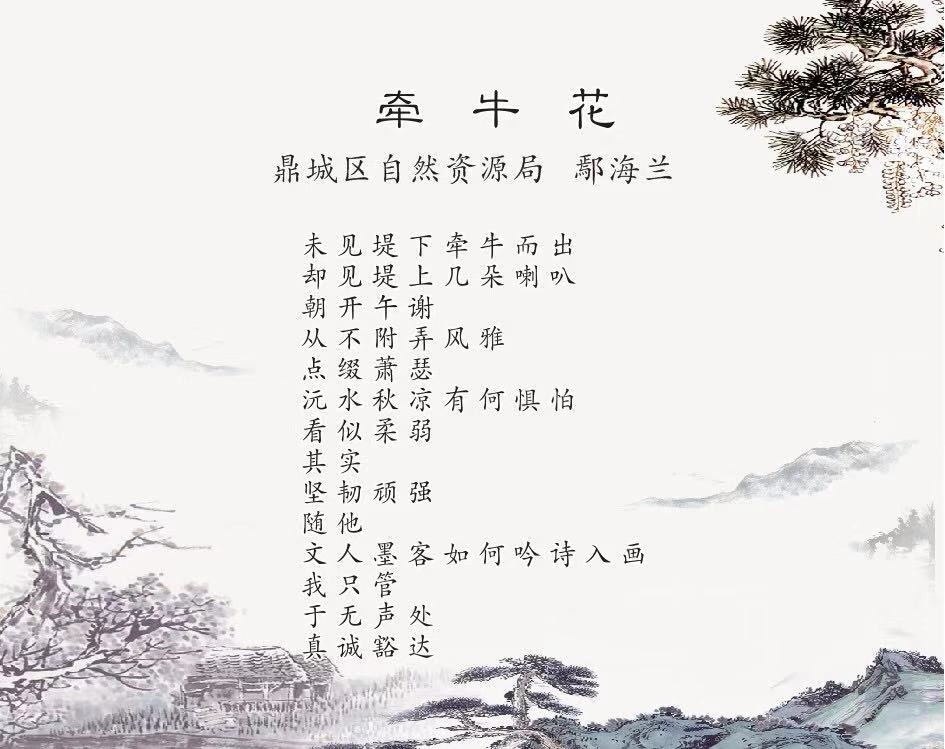 牵牛花
鼎城区自然资源局 鄢海兰
未见堤下牵牛而出
却见堤上几朵喇叭
朝开午谢
从不附弄风雅
点缀萧瑟
沅水秋凉有何惧怕
看似柔弱
其实
坚韧顽强
随他
文人墨客如何吟诗入画
我只管
于无声处
真诚豁达